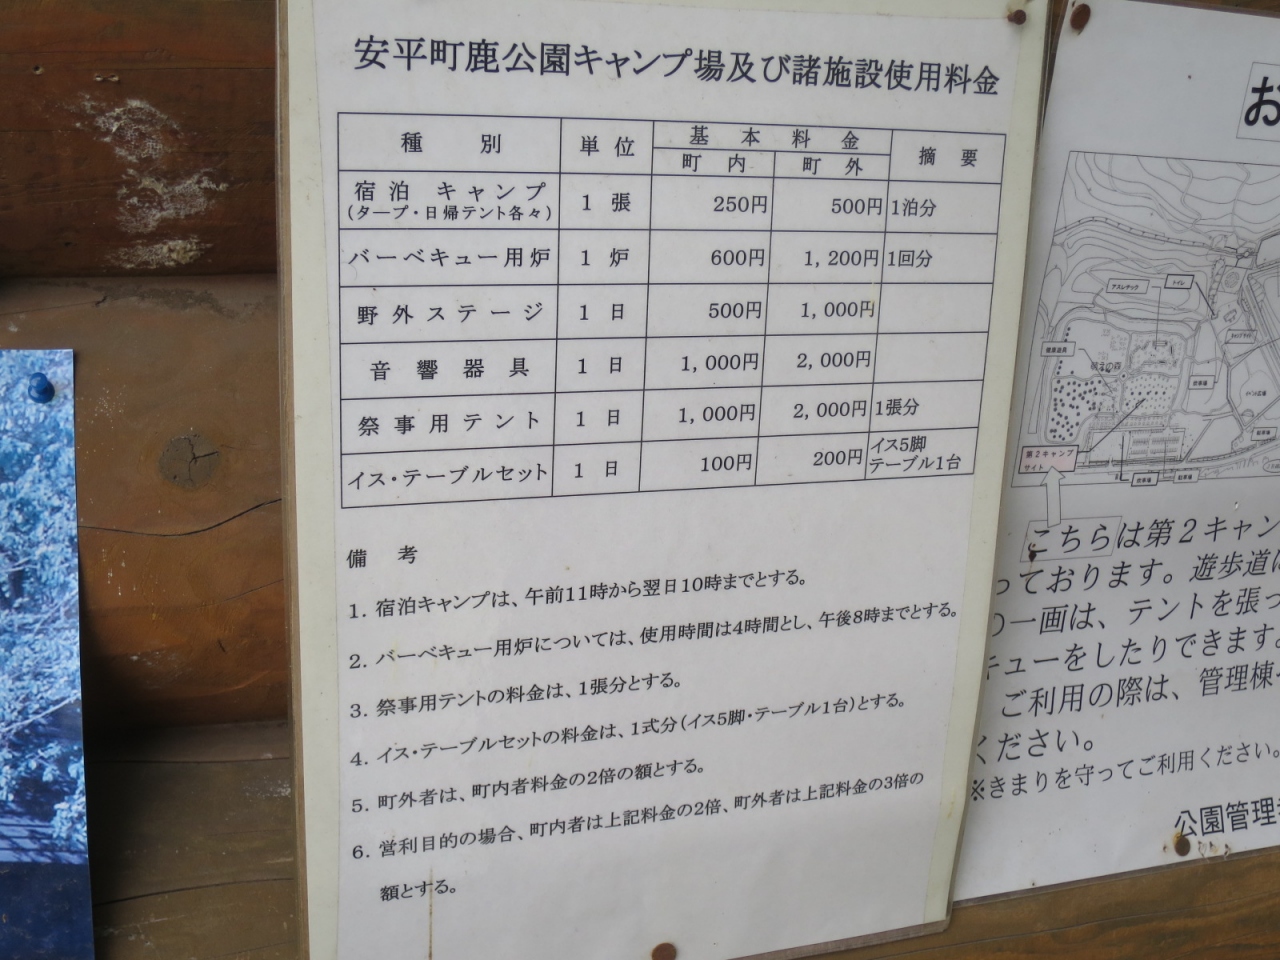 安平町鹿公園キャンプ場及び諸施設使用料金
種別 単位 基本料金 摘要
町内 町外
宿泊 キャンプ
(タープ・日帰テント各々) 1 張 250円 500円 1泊分
バーベキュー用炉 1 炉 600円 1,200円 1回分
野外ステージ 1 日 500円 1,000円
音響器具 1 日 1,000円 2,000円
祭事用テント 1 日 1,000円 2,000円 1張分
イス・テーブルセット 1 日 100円 200円 イス5脚
テーブル1台
備 考
1. 宿泊キャンプは、午前11時から翌日10時までとする。
2. バーベキュー用炉については、使用時間は4時間とし、午後8時までとする。
3. 祭事用テントの料金は、1張分とする。
4. イス・テーブルセットの料金は、1式分(イス5脚・テーブル1台)とする。
5. 町外者は、町内者料金の2倍の額とする。
6. 営利目的の場合、町内者は上記料金の2倍、町外者は上記料金の3倍の
額とする。
お
アスレチック
トイレ
第2キャンプ
サイト
こちらは第2キャン
っております。遊歩道
の一画は、テントを張っ
キューをしたりできます。
ご利用の際は、管理棟
ください。
※きまりを守ってご利用ください。
公園管理